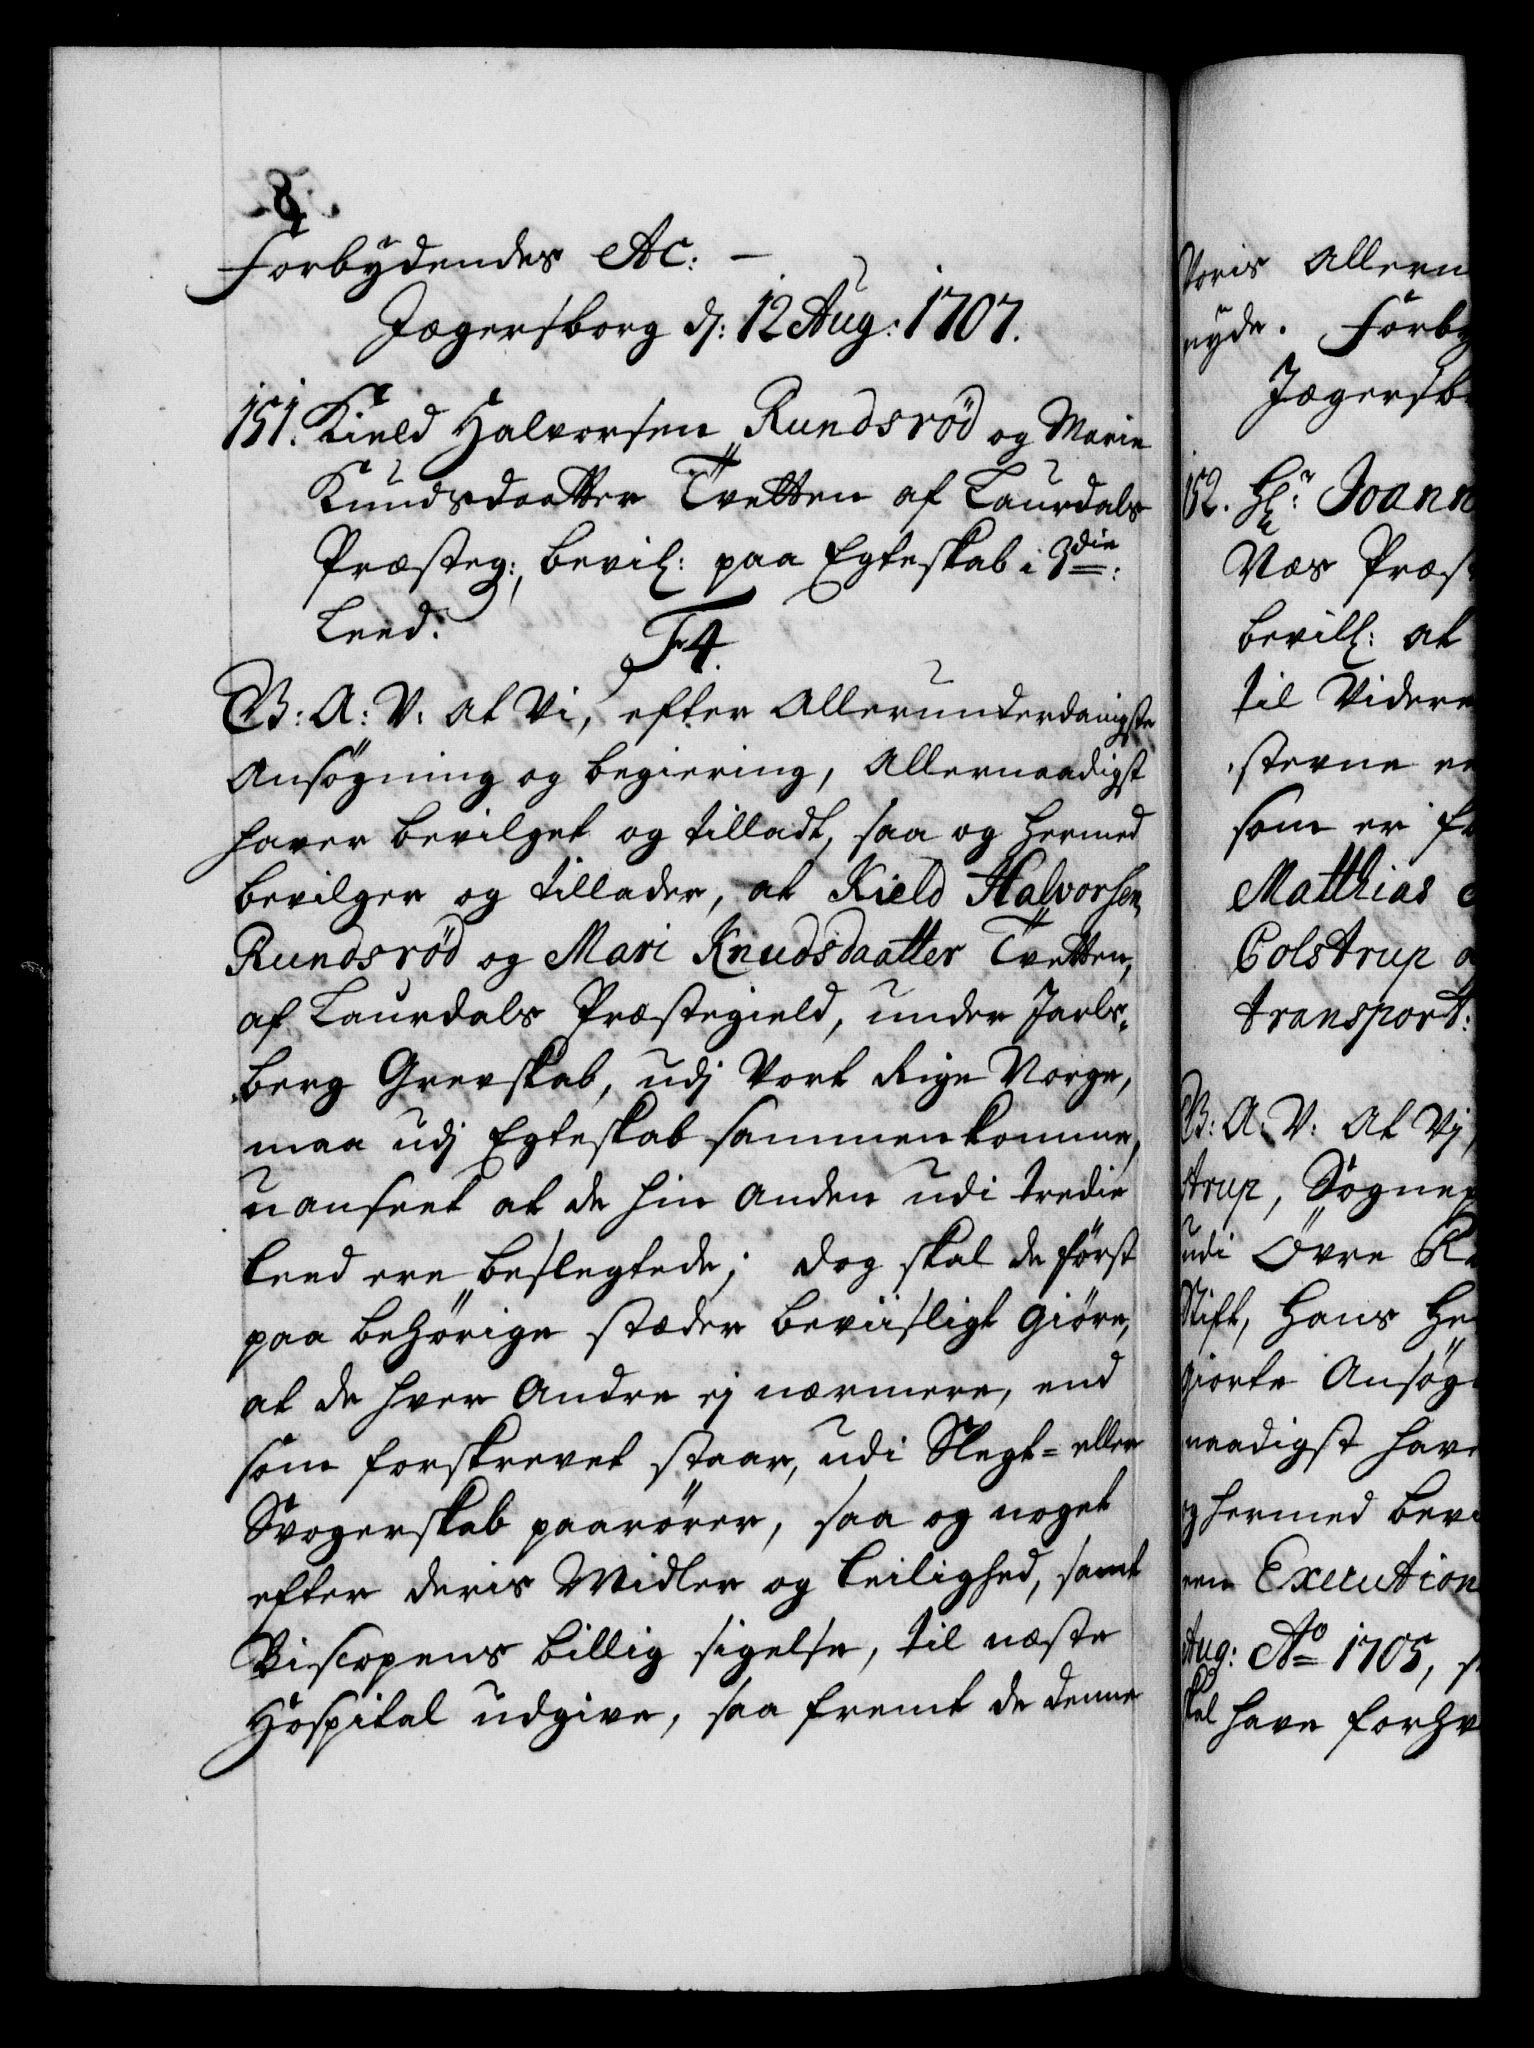 Forbydendes Ac: –
Jægersborg d: 12 Aug: 1707.
151. Kield Halvorsen Rundsrød og Marie
Knudsdaatter Tvetten af Laurdals
Præsteg:, bevil: paa Egteskab i 3die:
Leed.
F4.
V: A: V: at Vi, efter allerunderdanigste
ansøgning og begiering, allernaadigst
haver bevilget og tilladt, saa og hermed
bevilger og tillader, at Kield Halvorsen
Rundsrød og Mari Knudsdaatter Tvetten,
af Laurdals Præstegield, under Jarls-
berg Grevskab, udj Vort Rige Norge,
maa udj Egteskab sammenkomme,
uanseet at de hin anden udi tredie
leed ere beslegtede; dog skal de først
paa behørige stæder beviisligt giøre,
at de hver andre ej nærmere, end
som forskrevet staar, udi Slegt- eller
Svogerskab paarører, saa og noget
efter deris Midler og leilighed, samt
Biscopens billig sigelse, til næste
Hospital udgive, saa fremt de denne
Voris allern
nyde. Forby
Jægersb
152. Hr: Joann
Næs Præst
bevill: at
til Videre
sterne en
som er f
Matthias
Colstrup
transport:
V: A: V: at Vj,
strup, Sogne
udi Övre R
Stift, hans He
giorte Ansøg
naadigst have
og hermed bev
een Execution
Aug: Ao 1705, s
skal have forhv